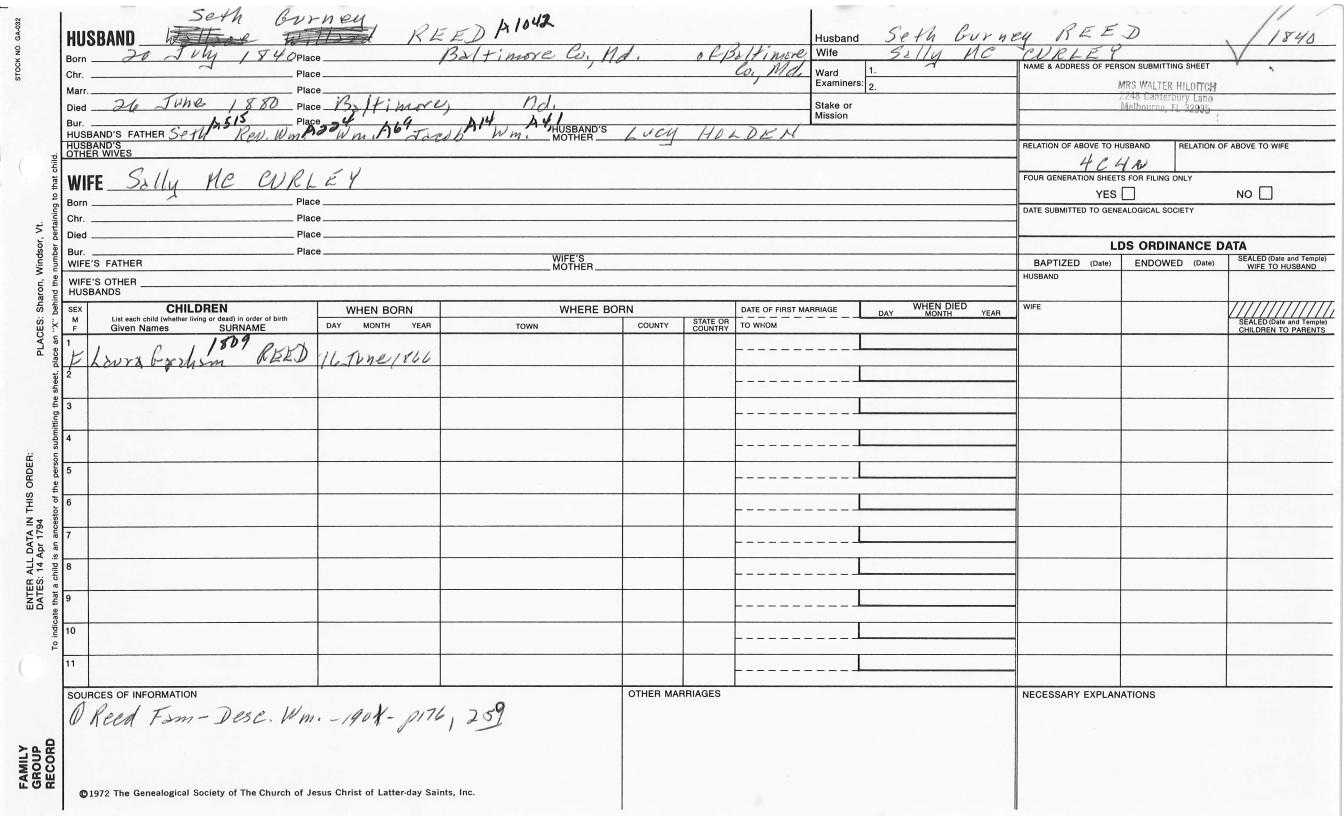 STOCK NO. GA-032
Seth Gurney
HUSBAND REED A1042
Born 20 July 1840 Place Baltimore Co., Md. of Baltimore Co., Md.
Chr. Place
Marr. Place
Died 26 June 1880 Place Baltimore, Md.
Bur. Place
HUSBAND'S FATHER Seth A515 Rev. Wm. A224 Wm. A69 Jacob A14 Wm. A4,1 HUSBAND'S MOTHER LUCY HOLDEN
HUSBAND'S OTHER WIVES
WIFE Sally MC CURLEY
Born Place
Chr. Place
Died Place
Bur. Place
WIFE'S FATHER WIFE'S MOTHER
WIFE'S OTHER HUSBANDS
Husband Seth Gurney REED 1840
Wife Sally MC CURLEY
Ward Examiners: 1.
2.
Stake or Mission
NAME & ADDRESS OF PERSON SUBMITTING SHEET
MRS WALTER HILDITCH
2248 Canterbury Lane
Melbourne, FL 32935
RELATION OF ABOVE TO HUSBAND RELATION OF ABOVE TO WIFE
4C4R
FOUR GENERATION SHEETS FOR FILING ONLY
YES NO
DATE SUBMITTED TO GENEALOGICAL SOCIETY
LDS ORDINANCE DATA
BAPTIZED (Date) ENDOWED (Date) SEALED (Date and Temple) WIFE TO HUSBAND
HUSBAND
WIFE
SEALED (Date and Temple) CHILDREN TO PARENTS
SEX M F
CHILDREN
List each child (whether living or dead) in order of birth
Given Names SURNAME
WHEN BORN
DAY MONTH YEAR
WHERE BORN
TOWN COUNTY STATE OR COUNTRY
DATE OF FIRST MARRIAGE
TO WHOM
WHEN DIED
DAY MONTH YEAR
1
F Laura Graham 1809 REED 16 June 1866
2
3
4
5
6
7
8
9
10
11
SOURCES OF INFORMATION
① Reed Fam - Desc. Wm. - 1901 - p176, 259
OTHER MARRIAGES
NECESSARY EXPLANATIONS
©1972 The Genealogical Society of The Church of Jesus Christ of Latter-day Saints, Inc.
FAMILY GROUP RECORD
ENTER ALL DATA IN THIS ORDER:
DATES: 14 Apr 1794 PLACES: Sharon, Windsor, Vt.
To indicate that a child is an ancestor of the person submitting the sheet, place an "X" behind the number pertaining to that child.